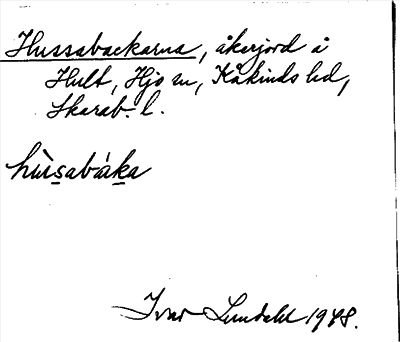 Hussabackarna, åkerjord å
Hult, Hjo sn, Kåkinds hd,
Skarab. l.
hùsabáka
Ivar Lundahl 1948.